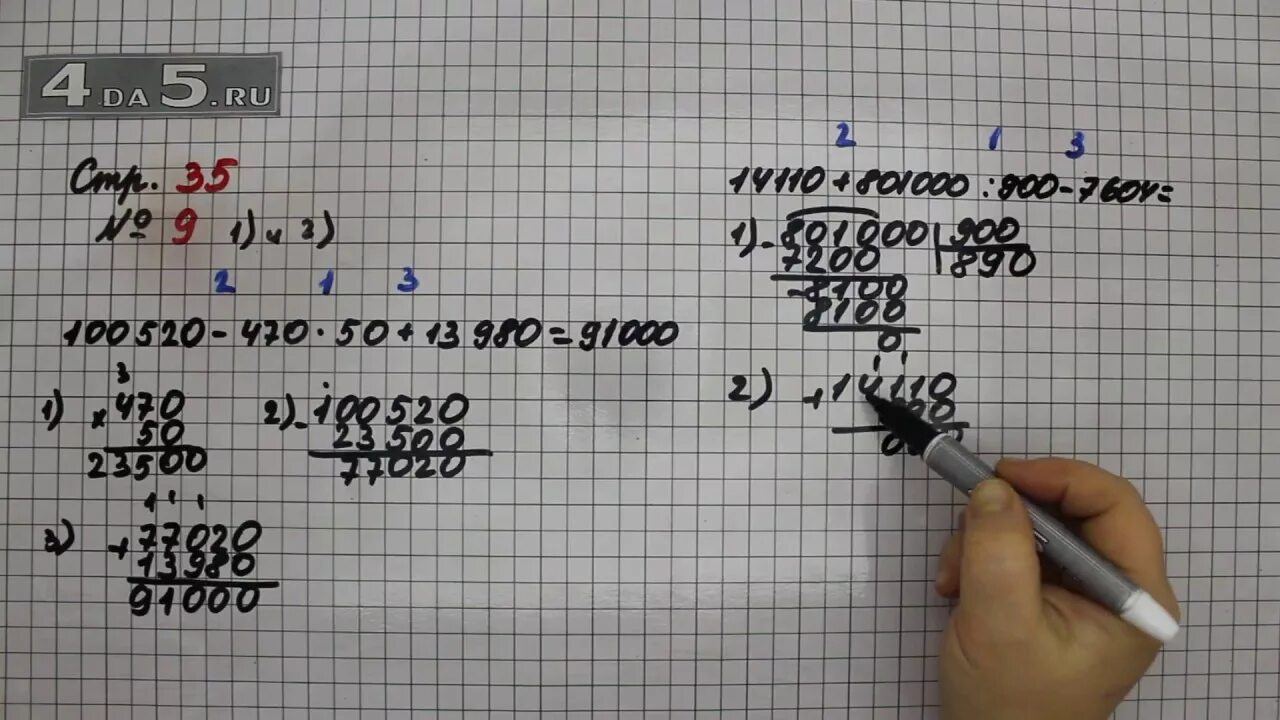 4.DA 5.RU
Стр. 35
№ 9 1) и 3)
2 1 3
100 520 - 470 · 50 + 13 980 = 91000
3
1) × 470
50
23500
2) - 100520
23500
77020
1 1 1
3) + 77020
13980
91000
2 1 3
14110 + 801000 : 900 - 7604 =
1) - 801000 | 900
7200 | 890
- 8100
8100
0
1 1
2) + 14110